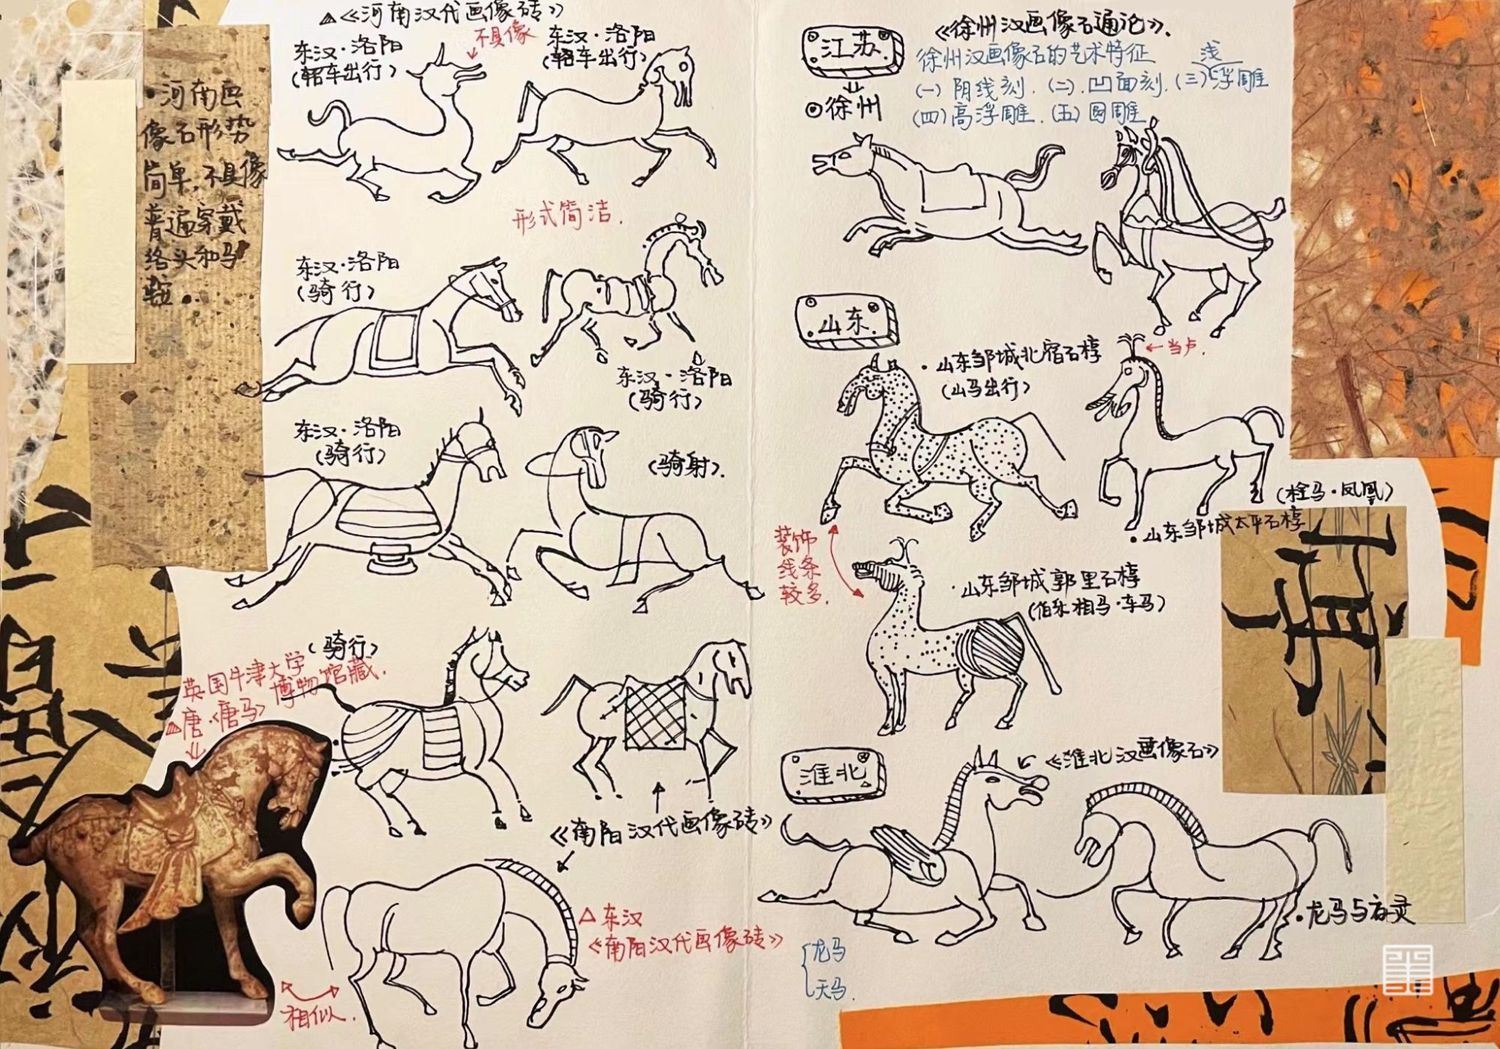 △《河南汉代画像砖》
东汉·洛阳
(轺车出行)
不具像
东汉·洛阳
(轺车出行)
·河南画
像石形势
简单,不具像
普遍穿戴
络头和马
鞍.
形式简洁.
东汉·洛阳
(骑行)
东汉·洛阳
(骑行)
东汉·洛阳
(骑行)
(骑射).
(骑行)
英国牛津大学
博物馆藏.
△唐·《唐马》
《南阳汉代画像砖》
△东汉
《南阳汉代画像砖》
相似.
江苏
◎徐州
《徐州汉画像石通论》.
徐州汉画像石的艺术特征
(一)阴线刻.(二).凹面刻.(三)浅浮雕
(四)高浮雕.(五)圆雕
山东.
·山东邹城北宿石椁
(山马出行)
当卢.
(拴马·凤凰)
·山东邹城太平石椁
装饰
线条
较多.
·山东邹城郭里石椁
(伯乐相马·车马)
淮北
《淮北汉画像石》
·龙马与
龙马
天马.